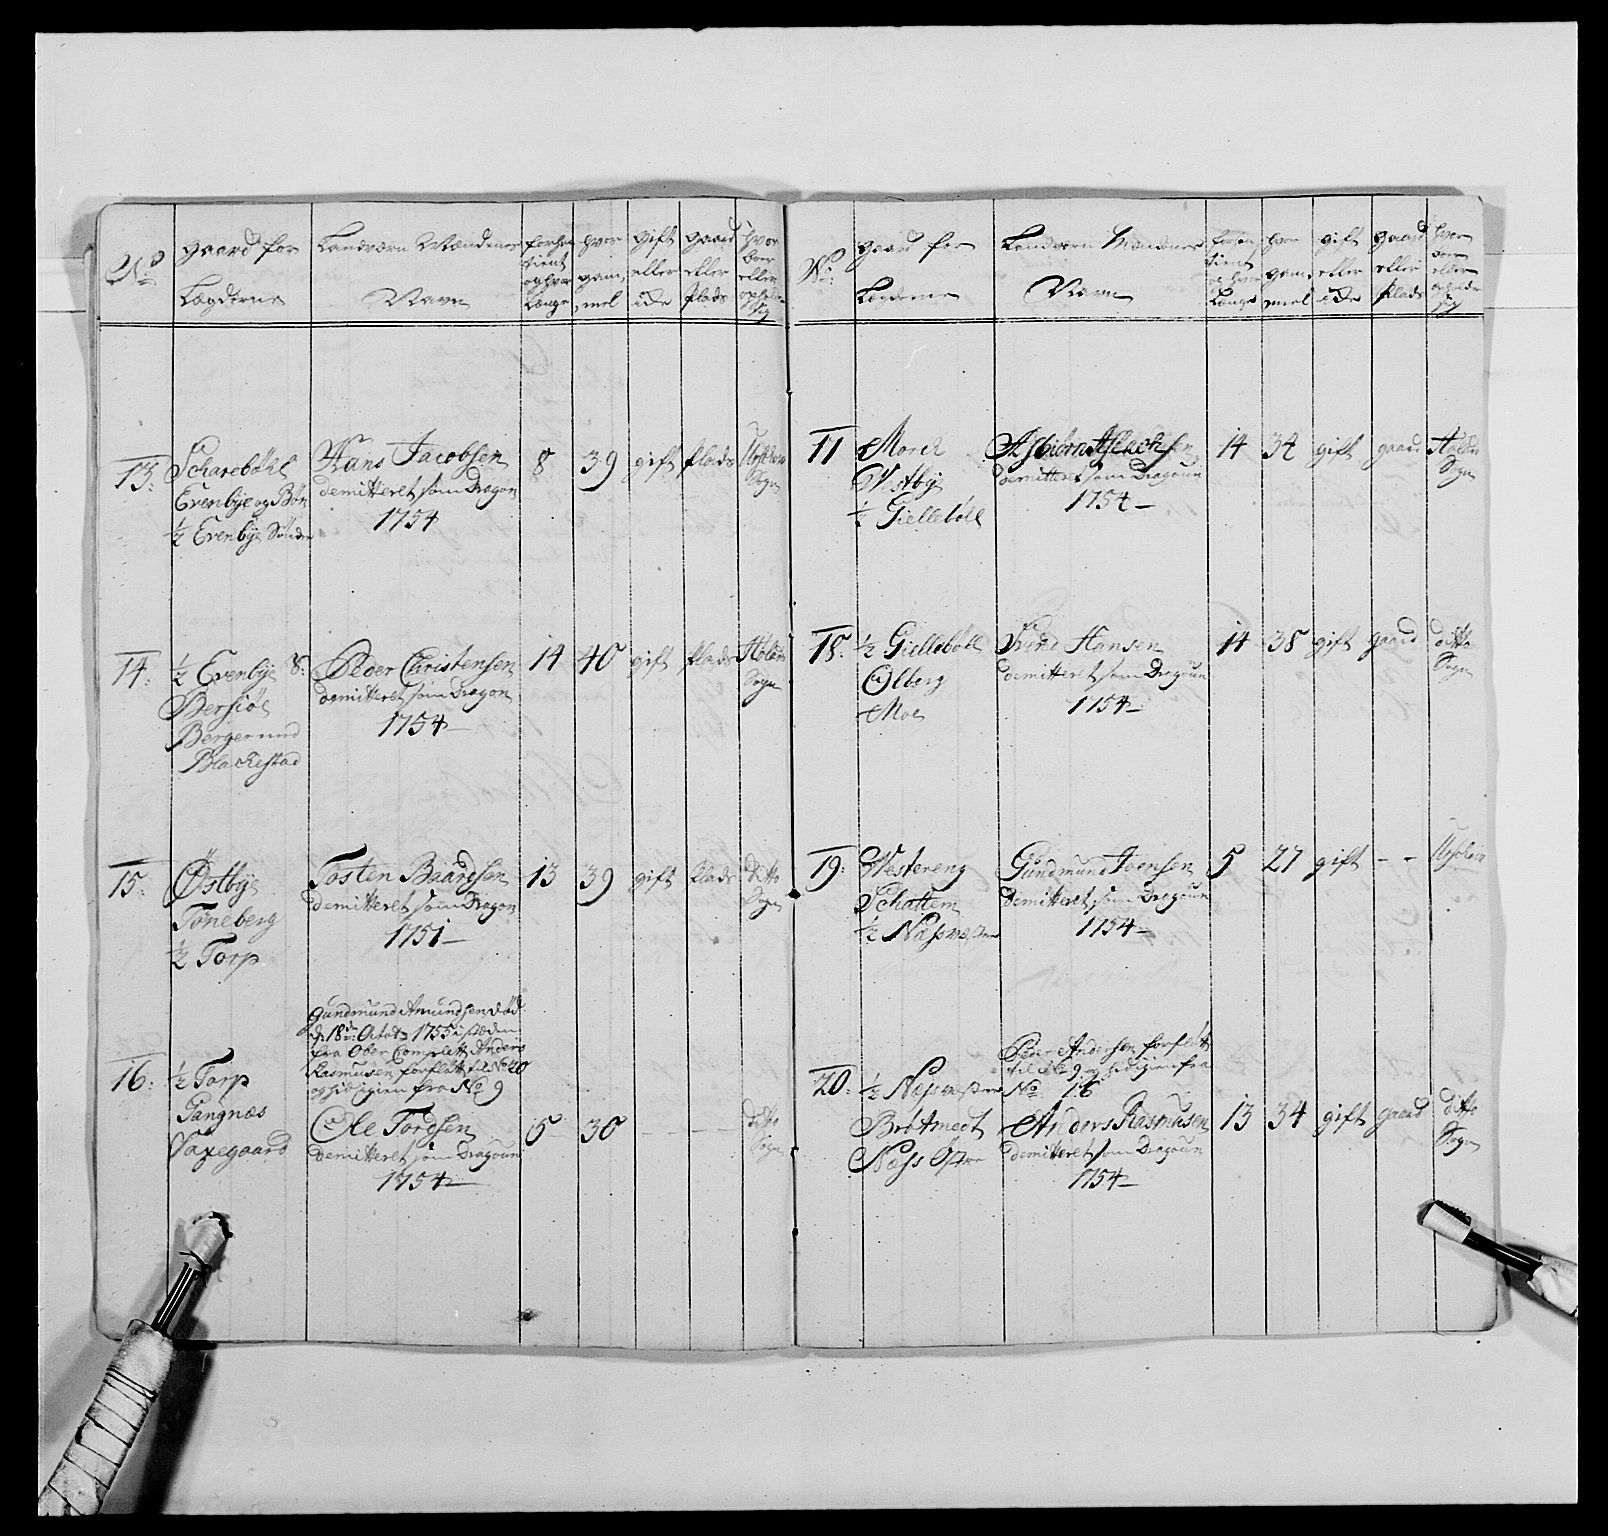 No
gaard for
Lægderne
Landværn Mændenes
Navn
forhen
tient
og hvor
Længe
hvor
gam,
mel
gift
eller
ide
gaard
eller
Plads
hvor
boer
eller
opholder
sig
13:
Scharebøhl
Evenbye og Bøn
½ Evenbye Søndre
Hans Jacobsen
demitteret som Dragon
1754
8
39
gift
plads
Sogn
14:
½ Evenbye S:
Bersiøe
Bergerund
Blackestad
Peder Christensen
demitteret som Dragon
1754
14
40
gift
plads
Høland
Sogn
15:
Østbye
Toneberg
½ Torp
Tosten Baardsen
demitteret som Dragon
1751
13
39
gift
Plads
ditto
Sogn
16:
½ Torp
Tangnæs
Saxegaard
Gundmund Amundsen død
d. 18de Octobr 1755 i steden
fra Ober Complett Anders
Rasmusen forfløtt til No 20
og hid igien fra No 9
Ole Tordsen
demitteret som Dragoun
1754
5
30
ditto
Sogn
No:
gaard for
Lægderne
Landværn Mændenes
Navn
forhen
tient
og hvor
Længe
hvor
gam,
mel
gift
eller
ide
gaard
eller
plads
hvor
boer
eller
opholder
sig
17
Moreh
Westbye
½ Giellebøll
Asbiorn Aslachsen
demitteret som Dragoun
1754
14
34
gift
gaard
Høland
Sogn
18:
½ Giellebøll
Olberg
Moe
Svend Hansen
demitteret som Dragoun
1754
14
38
gift
gaard
ditto
Sogn
19:
Westereng
Schattem
½ Næss westre
Gundmund Joensen
demitteret som Dragoun
1754
5
27
gift
- -
20:
½ Næss westre
Bråtnedt
Næss Østre
Peder Andersen forfløtt
til No 9 og hid igien fra
No 16
Anders Rasmusen
demitteret som Dragoun
1754
13
34
gift
gaard
ditto
Sogn